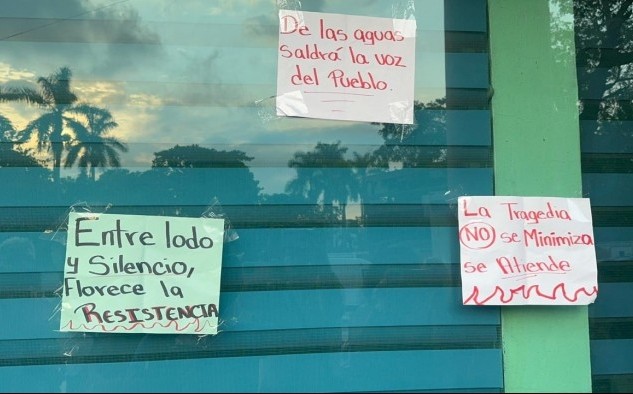 De las aguas
saldrá la voz
del Pueblo.
Entre lodo
y Silencio,
Florece la
RESISTENCIA
La Tragedia
NO se Minimiza
se Atiende